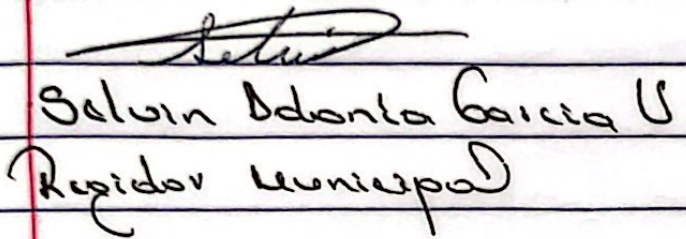 Selvin
Selvin Adonía García U
Regidor Municipal